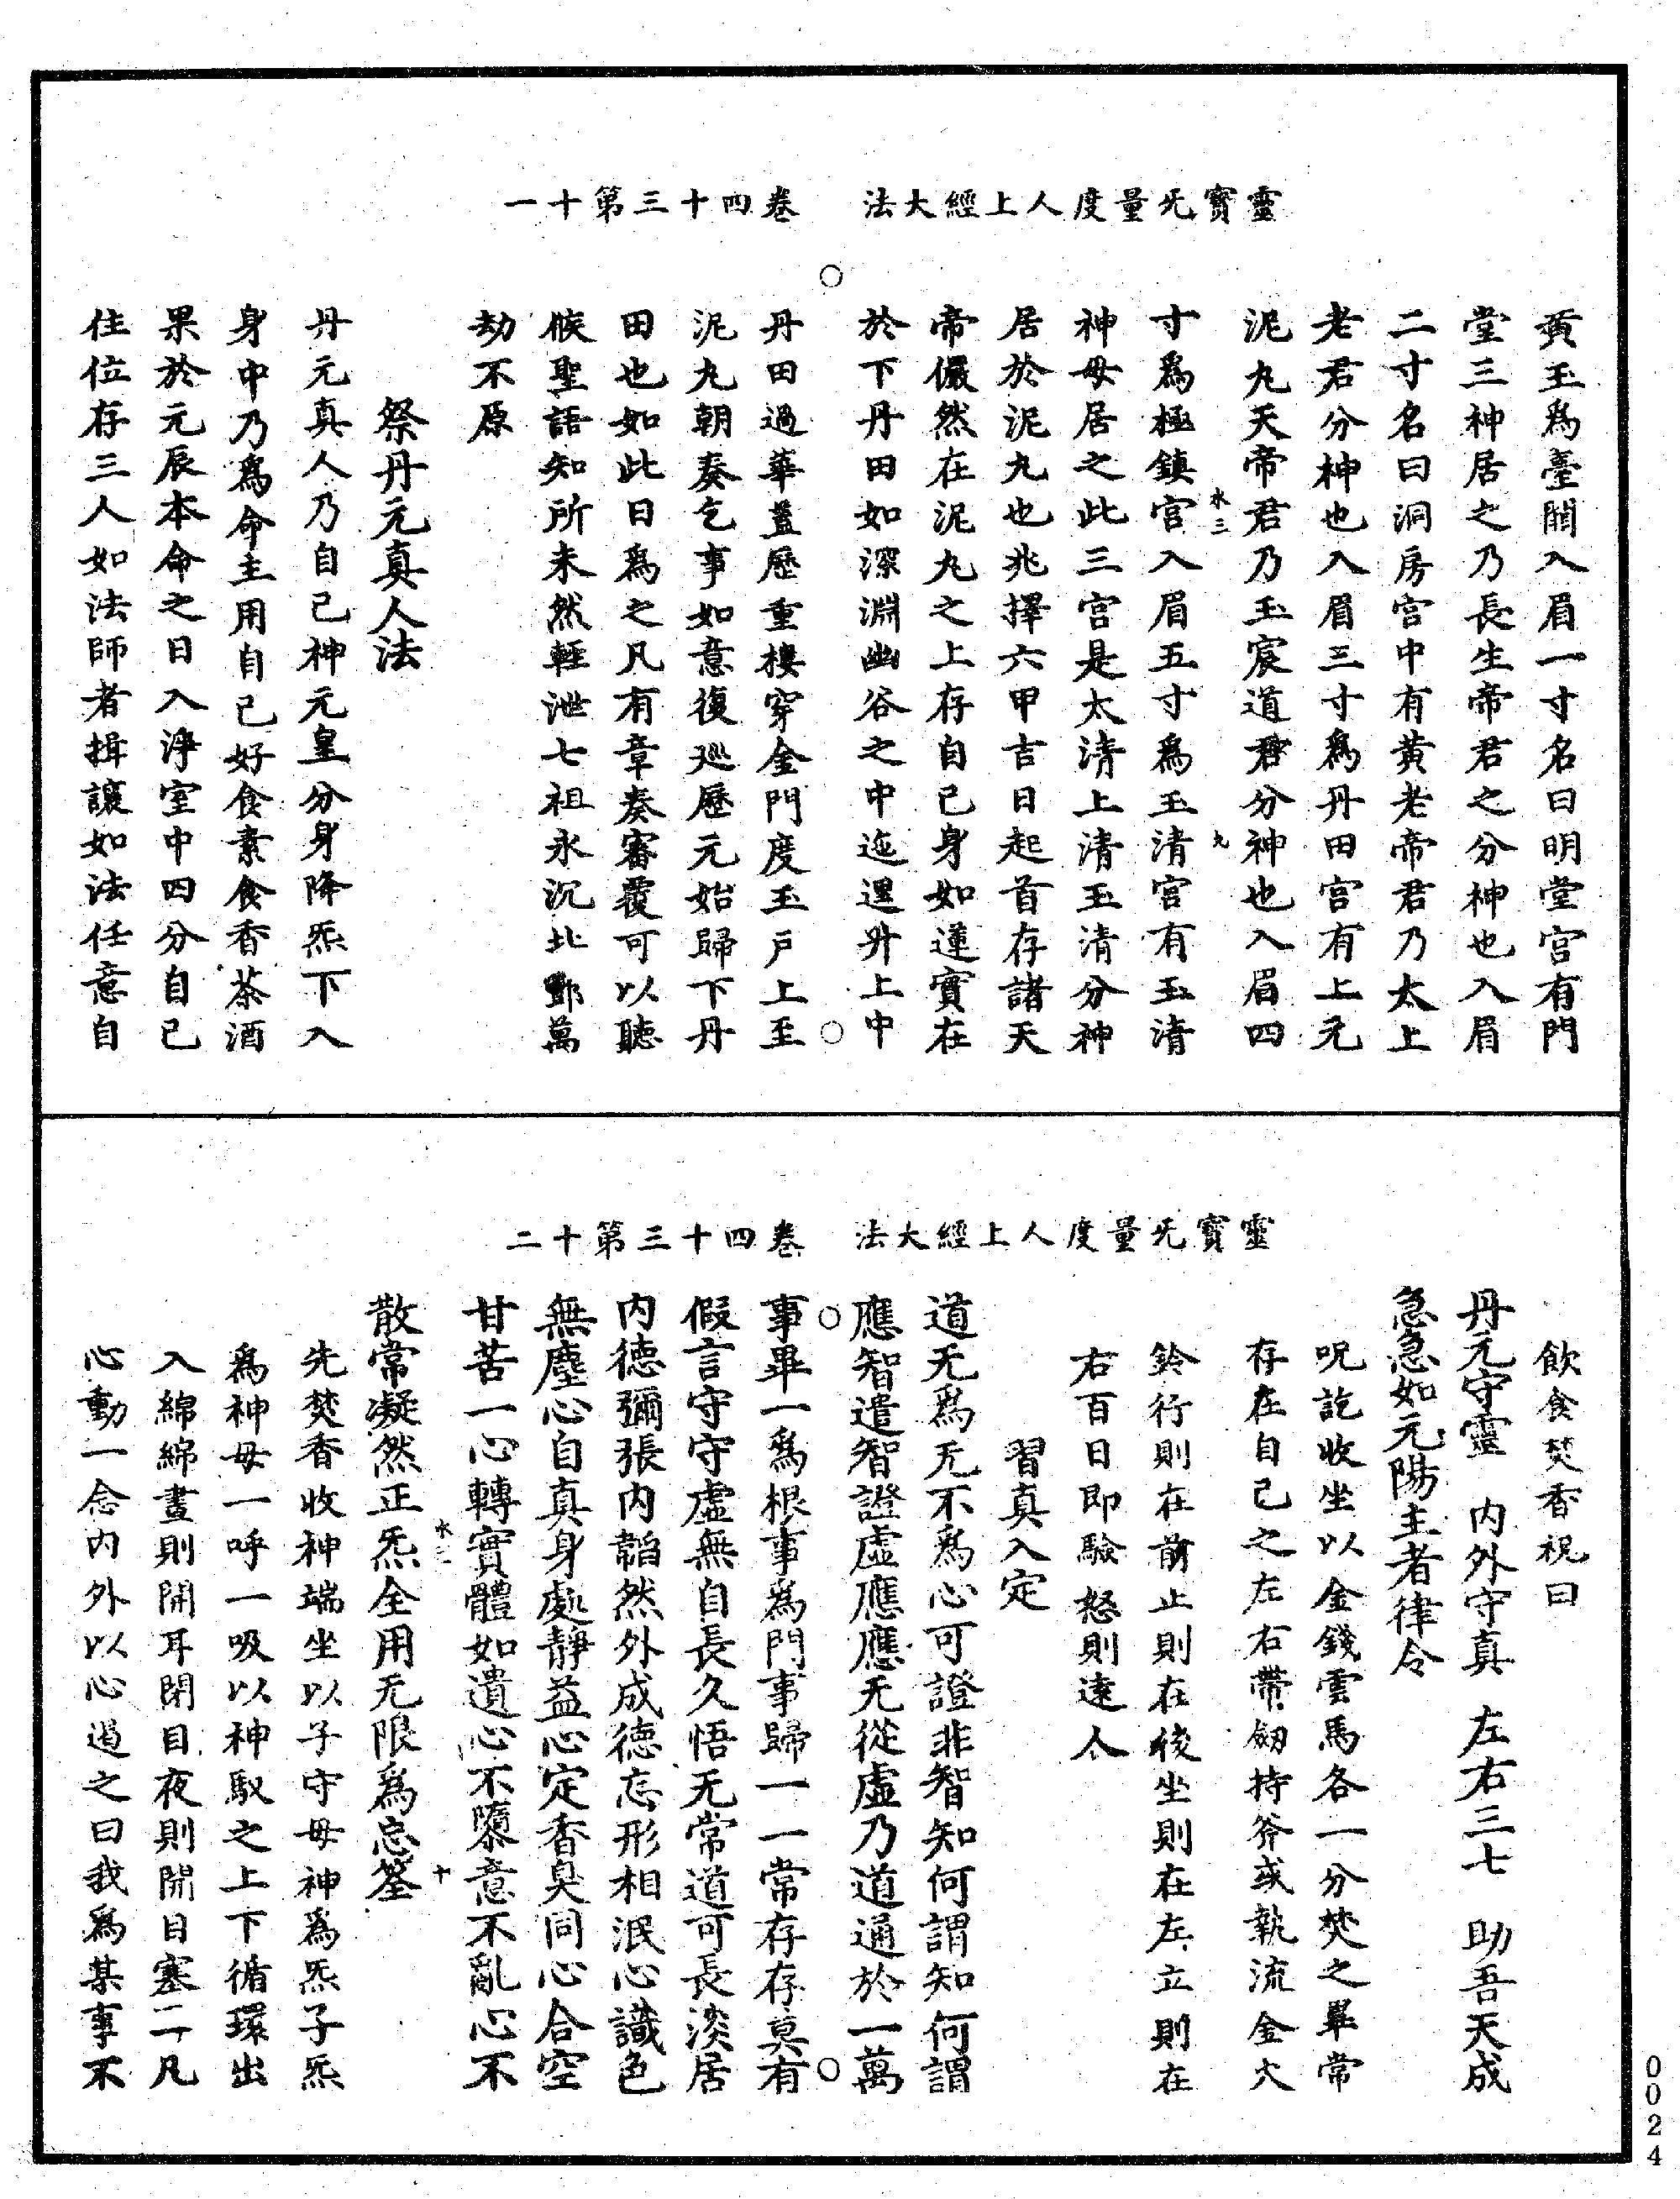 靈寶无量度人上經大法　卷四十三第十一
黃玉為臺闕入眉一寸名曰明堂宮有門
堂三神居之乃長生帝君之分神也入眉
二寸名曰洞房宮中有黃老帝君乃太上
老君分神也入眉三寸為丹田宮有上元
泥丸天帝君乃玉宸道君分神也入眉四
水三　九
寸為極鎮宮入眉五寸為玉清宮有玉清
神母居之此三宮是太清上清玉清分神
居於泥丸也兆擇六甲吉日起首存諸天
帝儼然在泥丸之上存自己身如蓮實在
於下丹田如深淵幽谷之中迤邐升上中
丹田過華蓋歷重樓穿金門度玉戶上至
泥丸朝奏乞事如意復巡歷元始歸下丹
田也如此日為之凡有章奏審覆可以聽
候聖語知所未然輕泄七祖永沉北酆萬
劫不原
祭丹元真人法
丹元真人乃自己神元皇分身降炁下入
身中乃為命主用自己好食素食香茶酒
果於元辰本命之日入淨室中四分自己
住位存三人如法師者揖讓如法任意自
靈寶无量度人上經大法　卷四十三第十二
飲食焚香祝曰
丹元守靈　內外守真　左右三七　助吾天成
急急如元陽主者律令
呪訖收坐以金錢雲馬各一分焚之畢常
存在自己之左右帶劒持斧或執流金火
鈴行則在前止則在後坐則在左立則在
右百日即驗怒則遠人
習真入定
道无為无不為心可證非智知何謂知何謂
應智遣智證虛應應无從虛乃道通於一萬
事畢一為根事為門事歸一一常存存莫有
假言守守虛無自長久悟无常道可長淡居
內德彌張內韜然外成德忘形相泯心識色
無塵心自真身處靜益心定香臭同心合空
甘苦一心轉實體如遺心不隳意不亂心不
水三　十
散常凝然正炁全用无限為忘筌
先焚香收神端坐以子守母神為炁子炁
為神母一呼一吸以神馭之上下循環出
入綿綿晝則開耳閉目夜則開目塞二凡
心動一念內外以心遏之曰我為某事不
0024